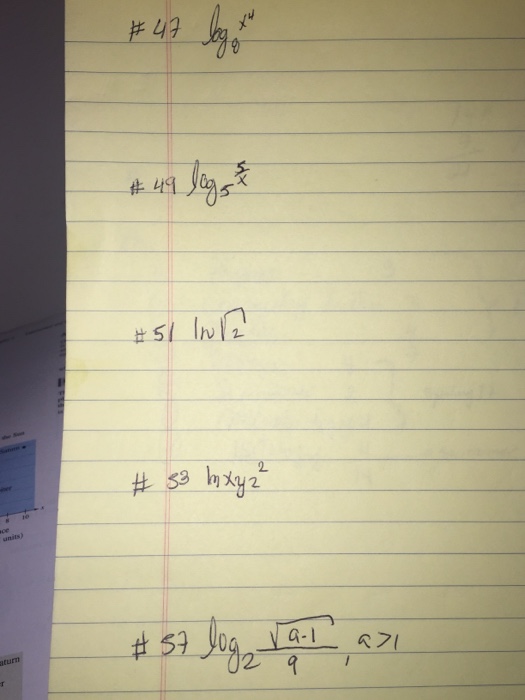 # 47 log₈ x⁴
# 49 log₅ 5/x
# 51 ln√2
# 53 ln xyz²
# 57 log₂ √(a-1)/9, a>1
units)
aturn